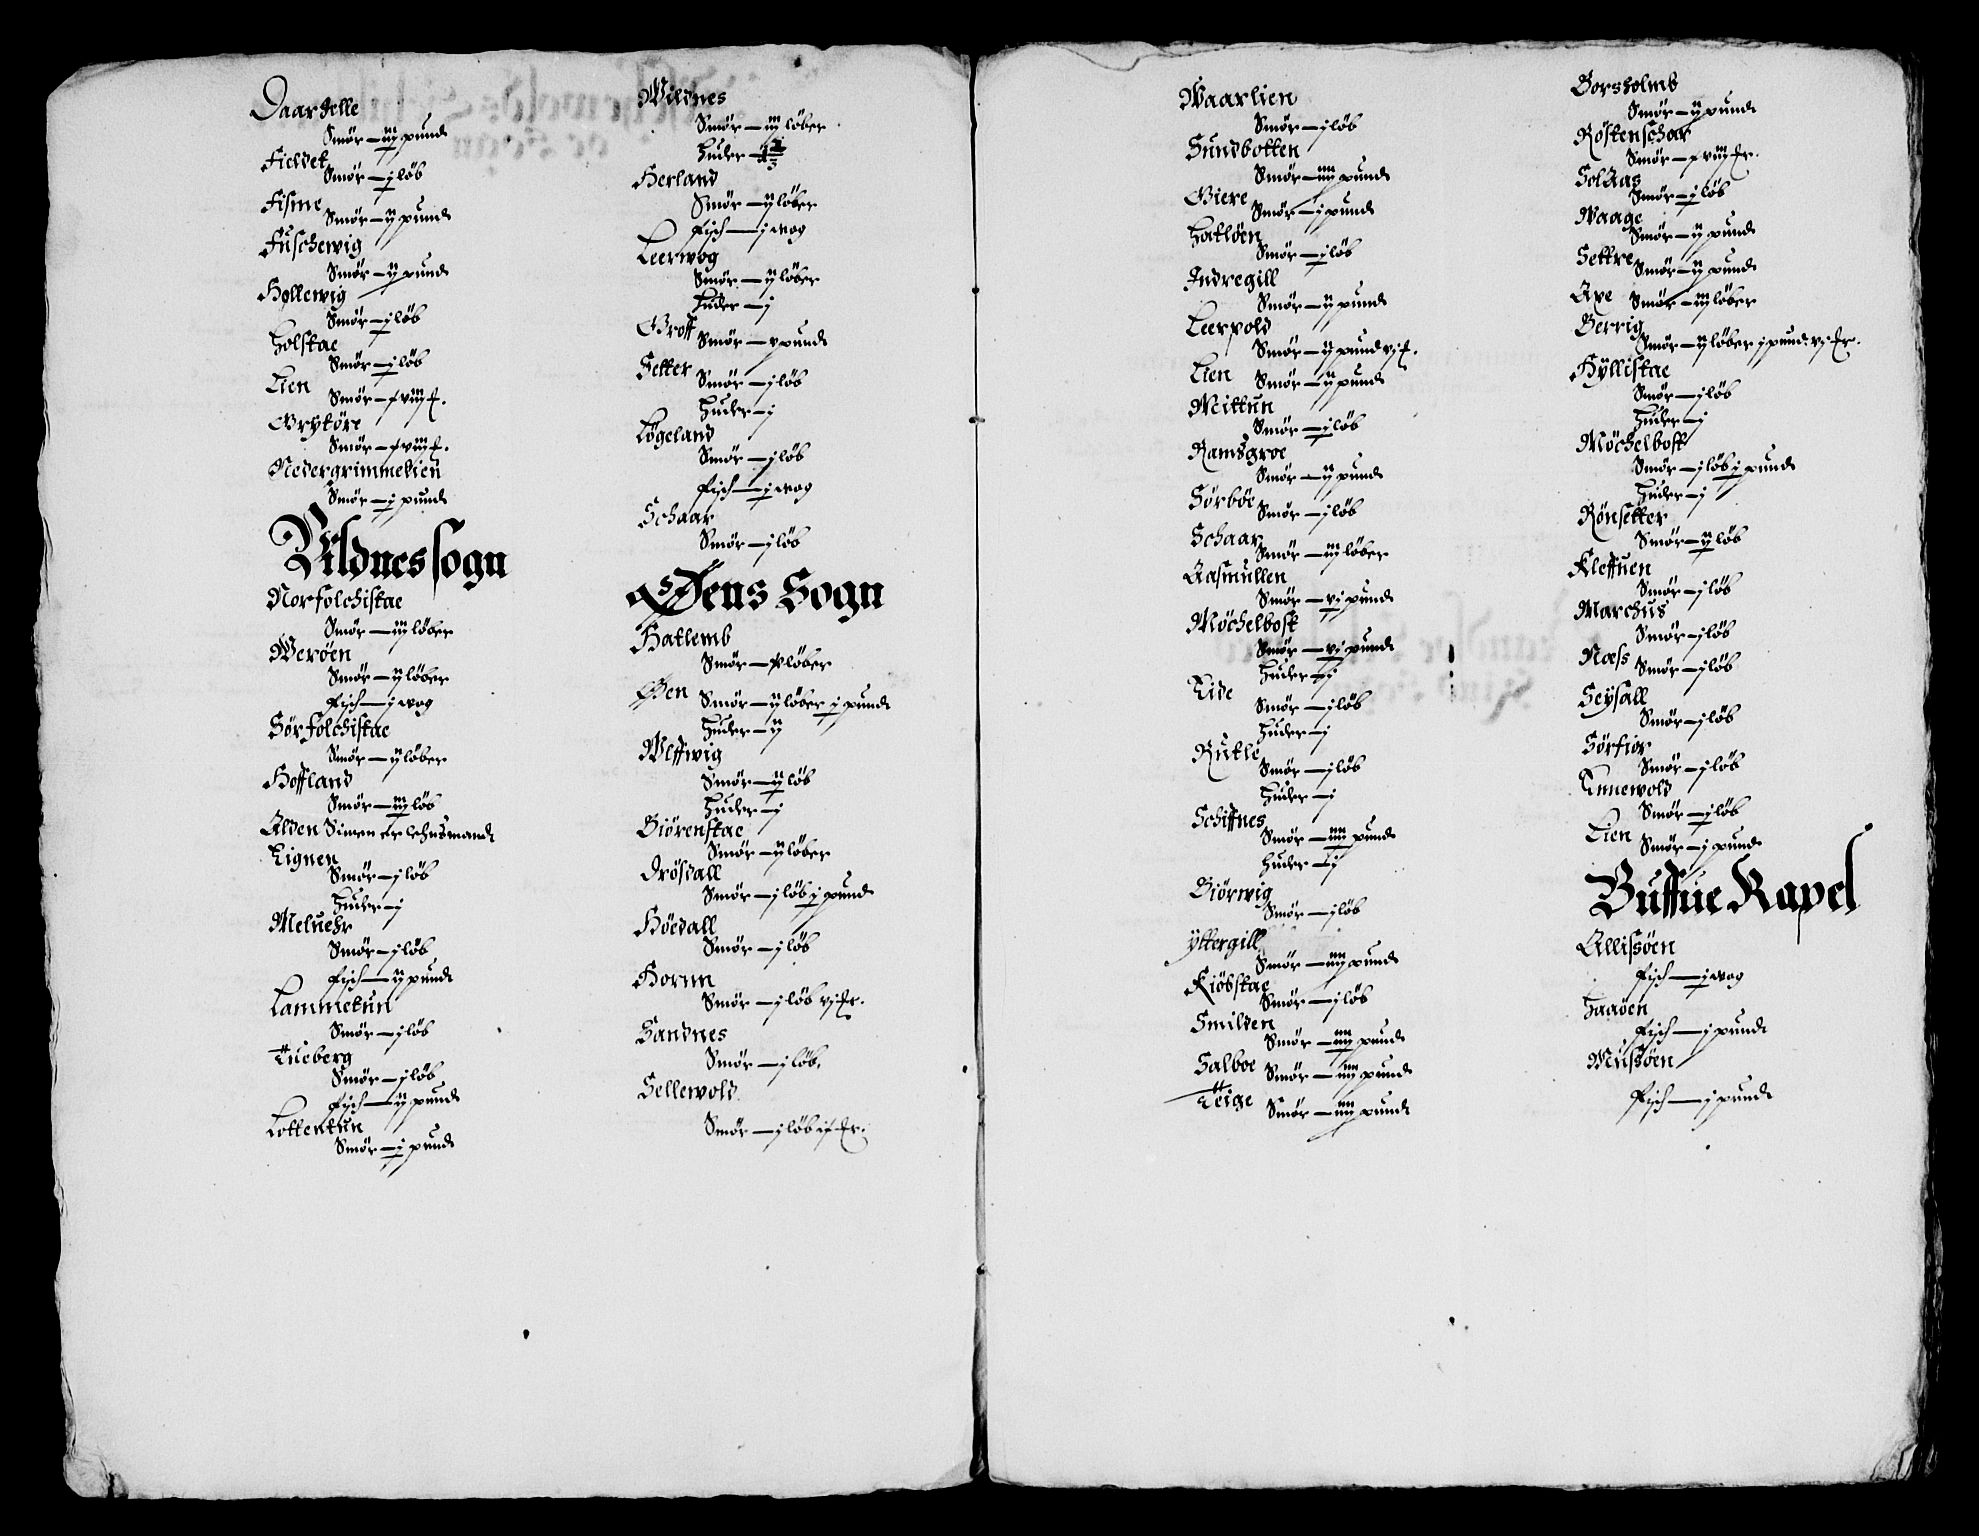 Daardelle
Smör — iij pund
Fieldet
Smör — j löb
Fisme
Smör — ij pund
Fuschewig
Smör — ij pund
Hollewig
Smör — j löb
Holstae
Smör — j löb
Lien
Smör —
Grytöre
Smör —
Nedergrimmelien
Smör — j pund
Vildnes sogn
Norfolchistae
Smör — iij löber
Weröen
Smör — ij löber
Fisch — j wog
Sörfolchistae
Smör — ij löber
Hoffland
Smör — iij löb
Alden Simen er lehnsmand
Eignen
Smör — j löb
Huder — j
Meluehr
Smör — j löb
Fisch — ij pund
Lammetun
Smör — j löb
Tueberg
Smör — j löb
Fisch — ij pund
Lottentun
Smör — j pund
Wildnes
Smör — iij löber
Huder —
Herland
Smör — ij löber
Fisch — j wog
Leerwog
Smör — ij löber
Huder — j
Groff
Smör — v pund
Setter
Smör — j löb
Huder — j
Lögeland
Smör — j löb
Fisch — j wog
Schaar
Smör — j löb
Øens Sogn
Hatlemb
Smör — löber
Øen Smör — ij löber j pund
Huder — ij
Wlffwig
Smör — ij löb
Huder — j
Biörenstae
Smör — ij löber
Drösdall
Smör — j löb j pund
Höedall
Smör — j löb
Hornn
Smör — j löb vj Er.
Sandnes
Smör — j löb.
Sellewold
Smör — j löb
Waarlien
Smör — j löb
Sundbotten
Smör — iiij pund
Giere
Smör — j pund
Hatlöen
Smör — j löb
Indregill
Smör — ij pund
Leerpold
Smör — ij pund vj
Lien Smör — ij pund
Mittun
Smör — j löb
Ramsgroe
Smör — ij pund
Sörböe
Smör — j löb
Schaar
Smör — iij löber
Aasmullen
Smör — vj pund
Möchelbost
Smör — vj pund
Huder — j
Eide
Smör — j löb
Huder — j
Rutle
Smör — j löb
Huder — j
Schiffnes
Smör — iiij pund
Huder — j
Biörwig
Smör — j löb
yttergill
Smör — iiij pund
Kiöbstae
Smör — j löb
Smilden
Smör — iiij pund
Salboe Smör — iiij pund
Teige Smör — iiij pund
Borsholmb
Smör — ij pund
Röstenschar
Smör —
Solaas
Smör — j löb
Waage
Smör — ij pund
Settre
Smör — ij pund
Axe Smör — iij löber
Berrig
Smör — ij löber j pund vj Er.
Hyllistae
Smör — j löb
Huder — j
Möchelbost
Smör — j löb j pund
Huder — j
Rönsetter
Smör — ij löb
Kleffuen
Smör — j löb
Marchus
Smör — j löb
Næss Smör — j löb
Seysall
Smör — j löb
Sörfior
Smör — j löb
Ennewold
Smör — j löb
Lien Smör — j pund
Buffue Kapel
Allissöen
Fisch — j wog
Haaöen
Fisch — j pund
Mussöen
Fisch — j pund